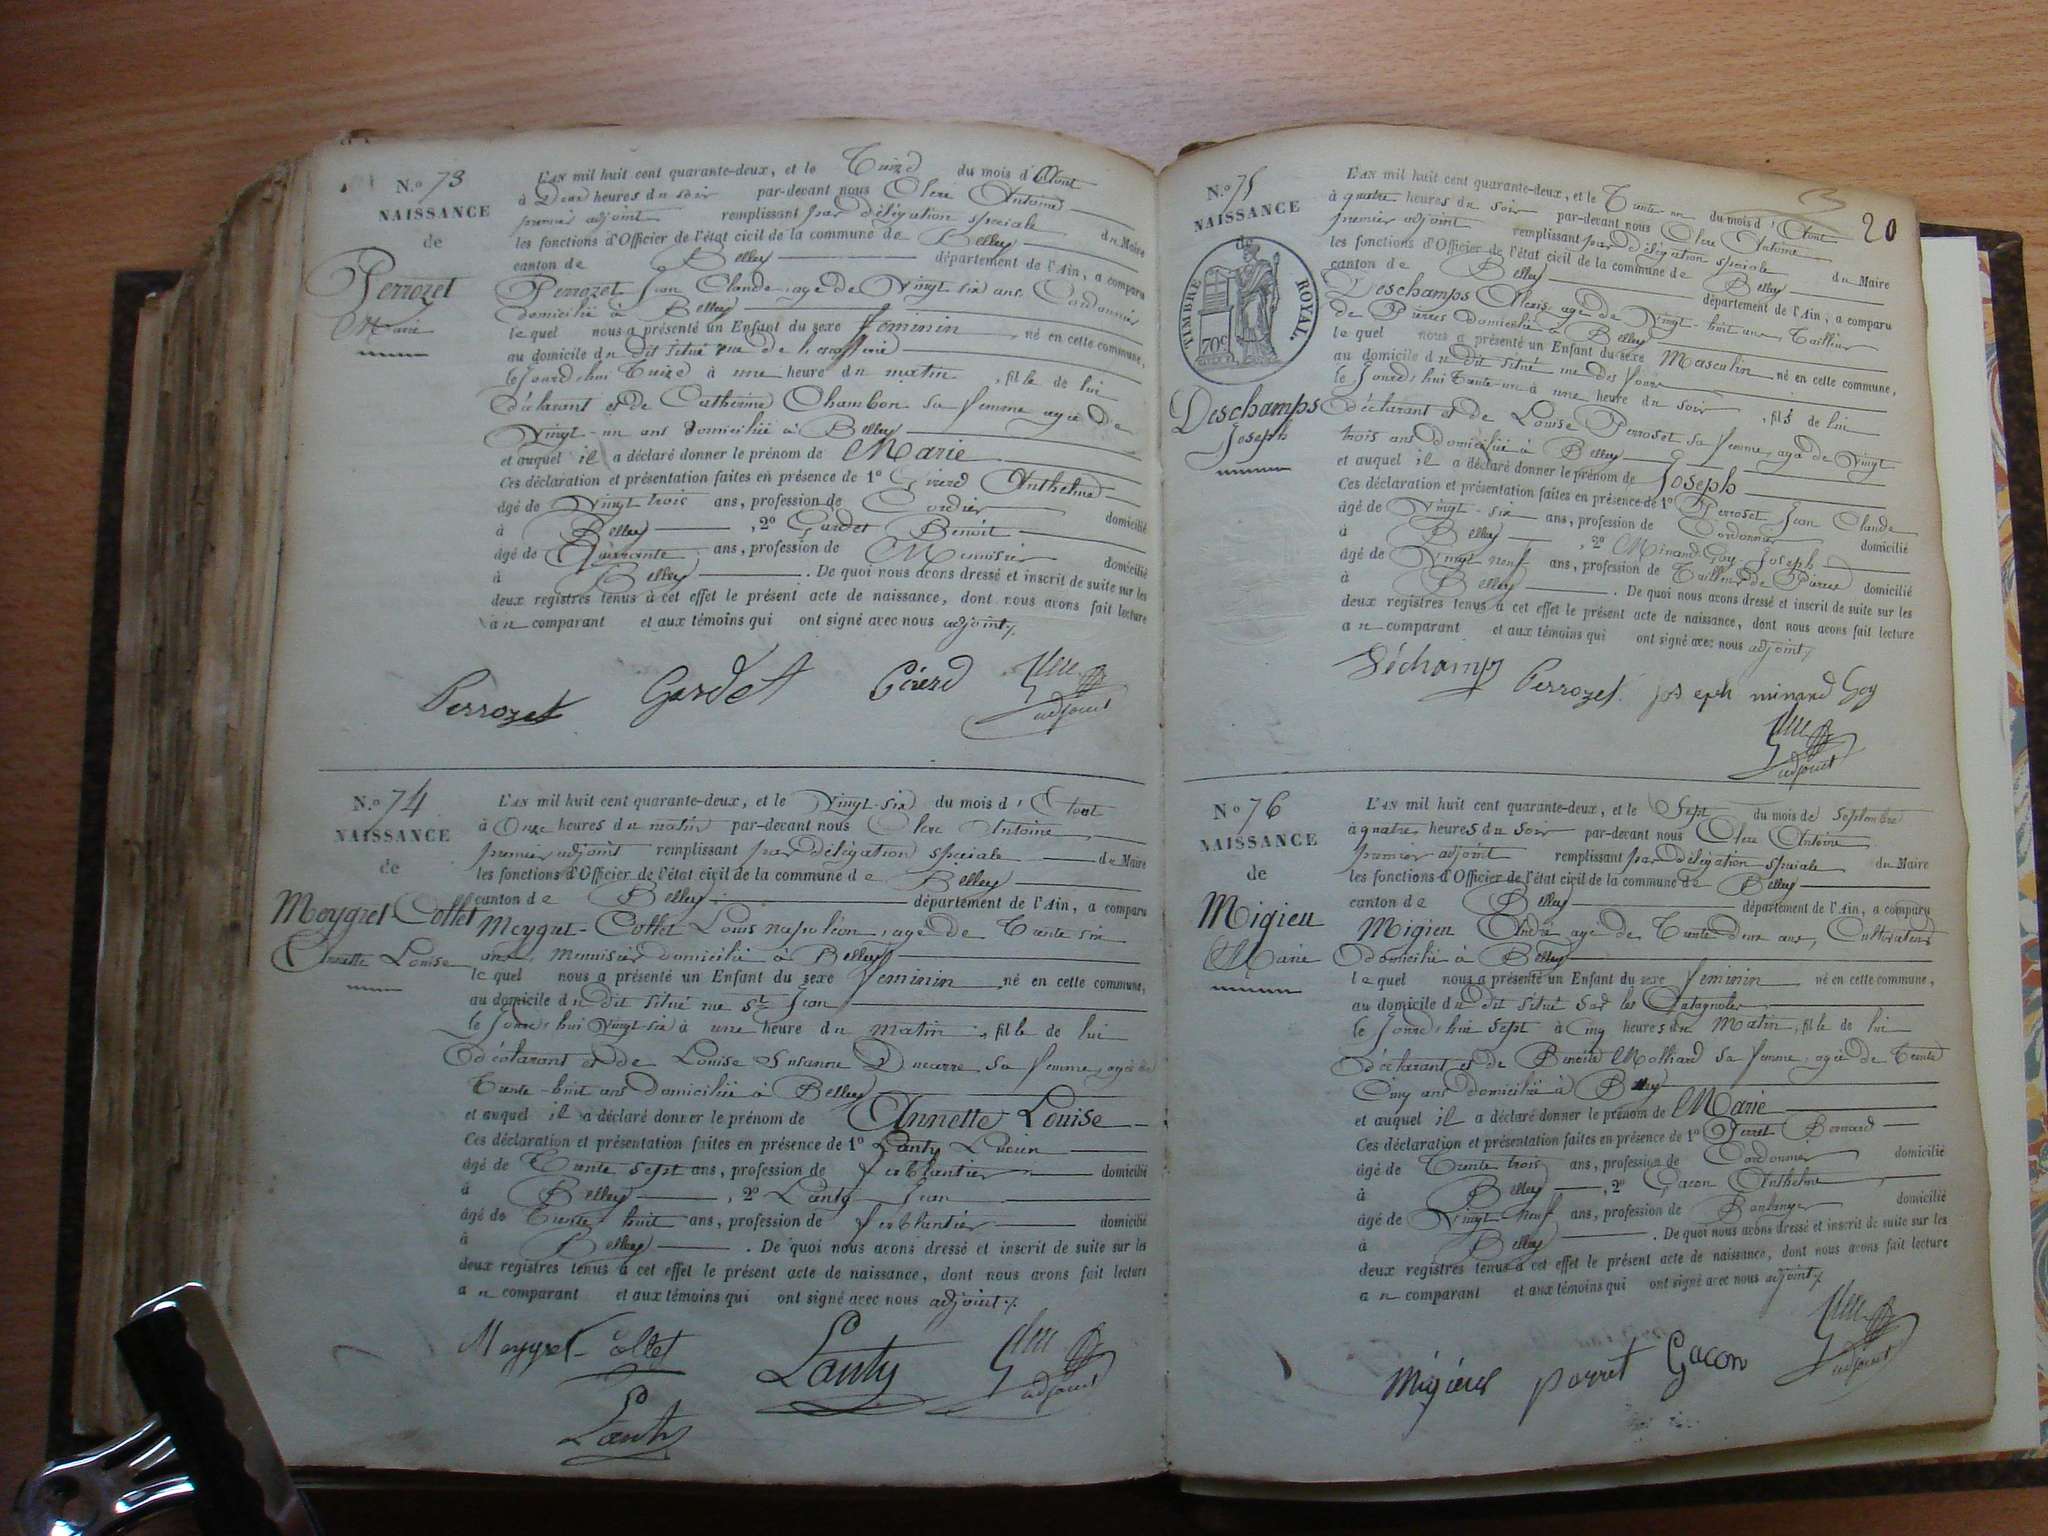 N.o 73
NAISSANCE
de
Perrozet
Marie
L'AN mil huit cent quarante-deux, et le Treize du mois d'Aout
à Deux heures du soir par-devant nous Clerc Antoine
premier adjoint remplissant par délégation spéciale du Maire
les fonctions d'Officier de l'état civil de la commune de Belley
canton de Belley département de l'Ain, a comparu
Perrozet Jean Claude, age de Vingt six ans Cordonnier
domicilié à Belley
le quel nous a présenté un Enfant du sexe feminin né en cette commune,
au domicile du dit situé rue de
le Jourd'hui Treize à une heure du matin, fille de lui
déclarant et de Catherine Chambon sa femme agée de
Vingt-un ans domiciliée à Belley
et auquel il a déclaré donner le prénom de Marie
Ces déclaration et présentation faites en présence de 1o Girerd Anthelme
âgé de Vingt trois ans, profession de Cordier domicilié
à Belley, 2o Gardet Benoit
âgé de Quarante ans, profession de Menuisier domicilié
à Belley. De quoi nous avons dressé et inscrit de suite sur les
deux registres tenus à cet effet le présent acte de naissance, dont nous avons fait lecture
au comparant et aux témoins qui ont signé avec nous adjoint
Perrozet Gardet Girerd Clerc
adjoint
N.o 74
NAISSANCE
de
Meygret-Collet
Annette Louise
L'AN mil huit cent quarante-deux, et le Vingt-six du mois d'Aout
à Onze heures du matin par-devant nous Clerc Antoine
premier adjoint remplissant par délégation spéciale du Maire
les fonctions d'Officier de l'état civil de la commune de Belley
canton de Belley département de l'Ain, a comparu
Meygret-Collet Louis napoléon, age de Trente six
ans, Menuisier domicilié à Belley
le quel nous a présenté un Enfant du sexe feminin né en cette commune,
au domicile du dit situé rue St Jean
le Jourd'hui Vingt-six à une heure du matin, fille de lui
déclarant et de Louise Susanne Ducarre sa femme, agée de
Trente-huit ans domiciliée à Belley
et auquel il a déclaré donner le prénom de Annette Louise
Ces déclaration et présentation faites en présence de 1o Lanty Lucien
âgé de Trente sept ans, profession de ferblantier domicilié
à Belley, 2o Lanty Jean
âgé de Trente huit ans, profession de ferblantier domicilié
à Belley. De quoi nous avons dressé et inscrit de suite sur les
deux registres tenus à cet effet le présent acte de naissance, dont nous avons fait lecture
au comparant et aux témoins qui ont signé avec nous adjoint
Meygret-Collet Lanty Clerc
adjoint
Lanty
20
N.o 75
NAISSANCE
de
TIMBRE ROYAL.
70c
Deschamps
Joseph
L'AN mil huit cent quarante-deux, et le Trente un du mois d'Aout
à quatre heures du soir par-devant nous Clerc Antoine
premier adjoint remplissant par délégation spéciale du Maire
les fonctions d'Officier de l'état civil de la commune de Belley
canton de Belley département de l'Ain, a comparu
Deschamps Alexis age de Vingt-huit ans Tailleur
de Pierres domicilié à Belley
le quel nous a présenté un Enfant du sexe Masculin né en cette commune,
au domicile du dit situé rue des fours
le Jourd'hui Trente-un à une heure du soir, fils de lui
déclarant et de Louise Perroset sa femme, agé de Vingt
trois ans domiciliée à Belley
et auquel il a déclaré donner le prénom de Joseph
Ces déclaration et présentation faites en présence de 1o Perroset Jean Claude
âgé de Vingt-six ans, profession de Cordonnier domicilié
à Belley, 2o Minand Goy Joseph
âgé de Vingt neuf ans, profession de Tailleur de Pierres domicilié
à Belley. De quoi nous avons dressé et inscrit de suite sur les
deux registres tenus à cet effet le présent acte de naissance, dont nous avons fait lecture
au comparant et aux témoins qui ont signé avec nous adjoint
Déchamps Perrozet joseph minand Goy
Clerc
adjoint
No 76
NAISSANCE
de
Migieu
Marie
L'AN mil huit cent quarante-deux, et le Sept du mois de Septembre
à quatre heures du soir par-devant nous Clerc Antoine
premier adjoint remplissant par délégation spéciale du Maire
les fonctions d'Officier de l'état civil de la commune de Belley
canton de Belley département de l'Ain, a comparu
Migieu André age de Trente deux ans, Cultivateur
domicilié à Belley
le quel nous a présenté un Enfant du sexe feminin né en cette commune,
au domicile du dit situé sur les
le Jourd'hui sept à Cinq heures du Matin, fille de lui
déclarant et de Benoite Molliard sa femme, agée de Trente
Cinq ans domiciliée à Belley
et auquel il a déclaré donner le prénom de Marie
Ces déclaration et présentation faites en présence de 1o Perret Bernard
âgé de Trente trois ans, profession de Cordonnier domicilié
à Belley, 2o Gacon Anthelme
âgé de Vingt neuf ans, profession de Boulanger domicilié
à Belley. De quoi nous avons dressé et inscrit de suite sur les
deux registres tenus à cet effet le présent acte de naissance, dont nous avons fait lecture
au comparant et aux témoins qui ont signé avec nous adjoint
perret Gacon Clerc
adjoint